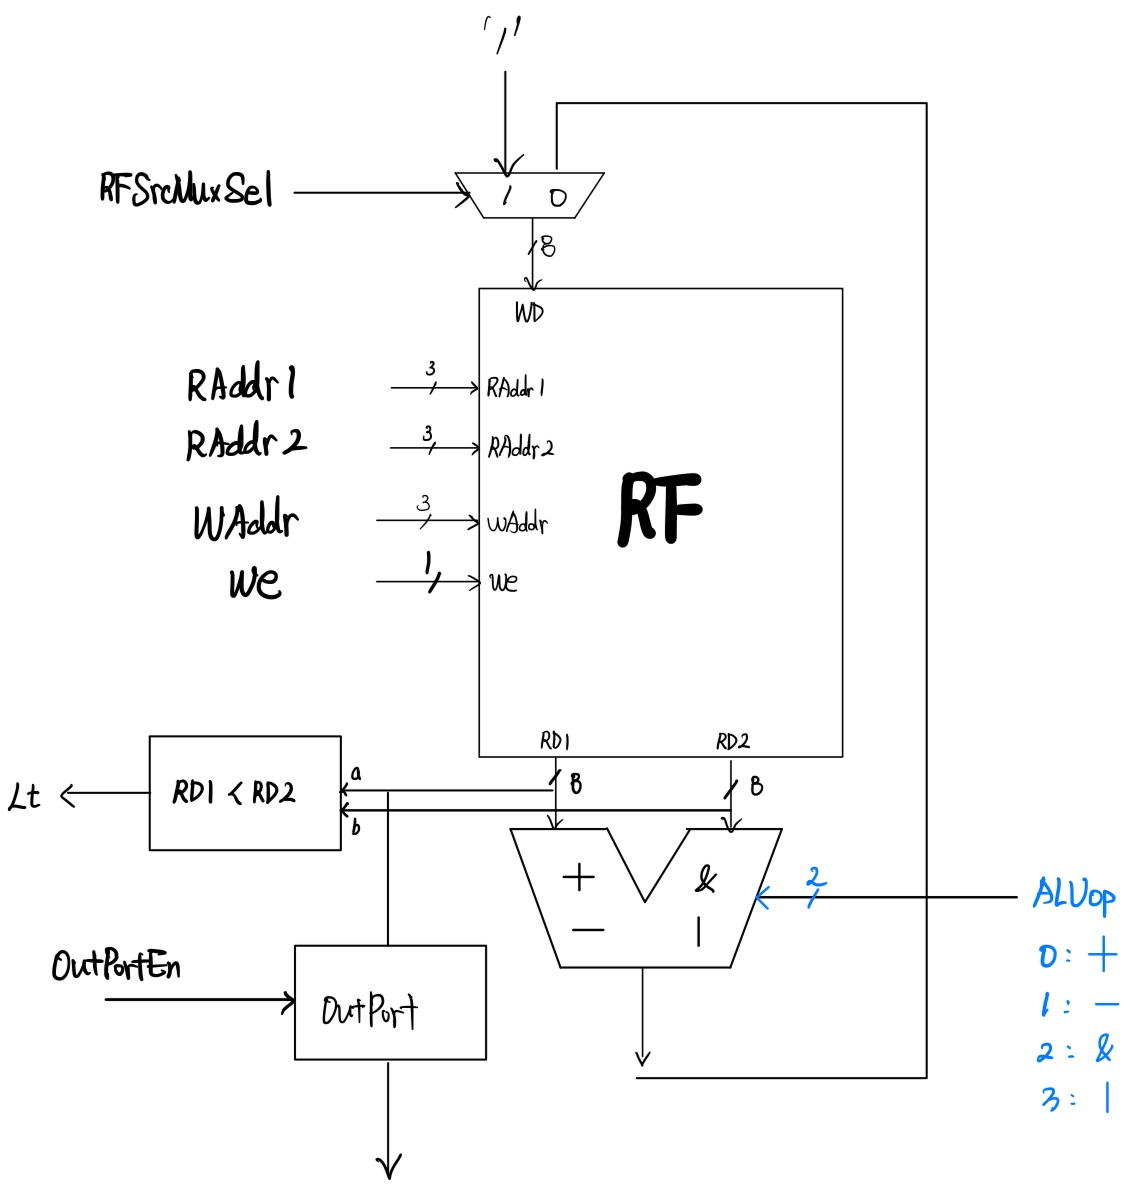 '1'
RFSrcMuxSel
1 0
8
WD
RAddr1
3
RAddr1
RAddr2
3
RAddr2
RF
WAddr
3
WAddr
We
1
We
RD1
RD2
8
8
Lt
RD1 < RD2
a
b
+
&
-
|
2
ALUop
0: +
1: -
2: &
3: |
OutPortEn
OutPort